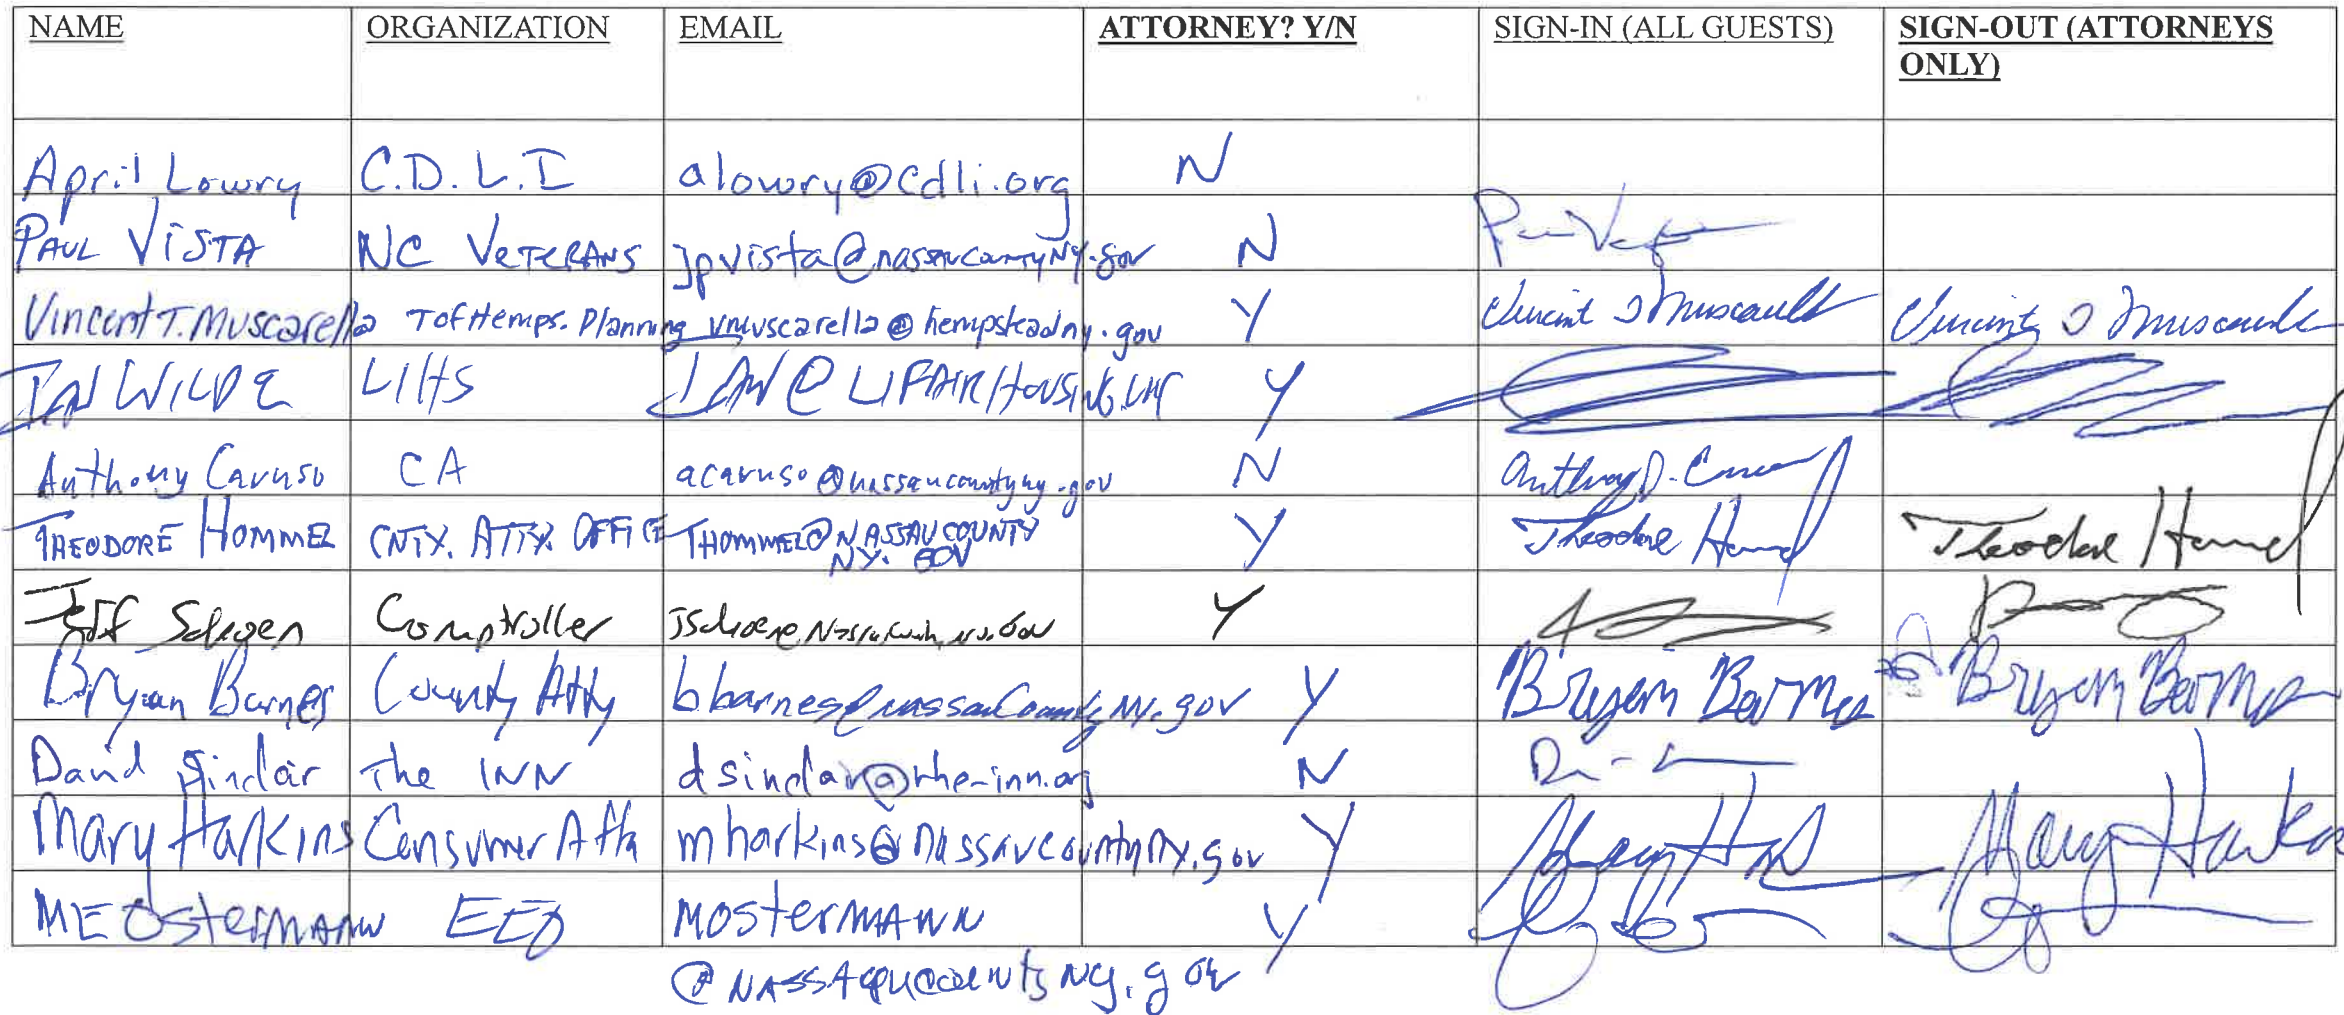 NAME ORGANIZATION EMAIL ATTORNEY? Y/N SIGN-IN (ALL GUESTS) SIGN-OUT (ATTORNEYS
ONLY)
April Lowry C.D.L.I alowry@cdli.org N
PAUL VISTA NC VETERANS jpvista@nassaucountyNY.gov N
Vincent T. Muscarella TofHemps. Planning vmuscarella@hempsteadny.gov Y Vincent T Muscarella Vincent T Muscarella
IAN WILDE LIHS IAN@LIFAIRHOUSING. Y
Anthony Caruso CA acaruso@nassaucountyny.gov N Anthony D. Caruso
THEODORE HOMMEL CNTY. ATTY. OFFICE THOMMEL@NASSAUCOUNTY Y Theodore Hommel Theodore Hommel
NY.GOV
Jeff Schoen Comptroller Y
Bryan Barnes County Atty bbarnes@nassauCountyNY.gov Y Bryan Barnes Bryan Barnes
David Sinclair The INN dsinclair@the-inn.org N
Mary Harkins Consumer Affa mharkins@nassaucountyny.gov Y Mary Harkins
ME Ostermann EEO MOstermANN Y
@NASSAuCountyNy.gov